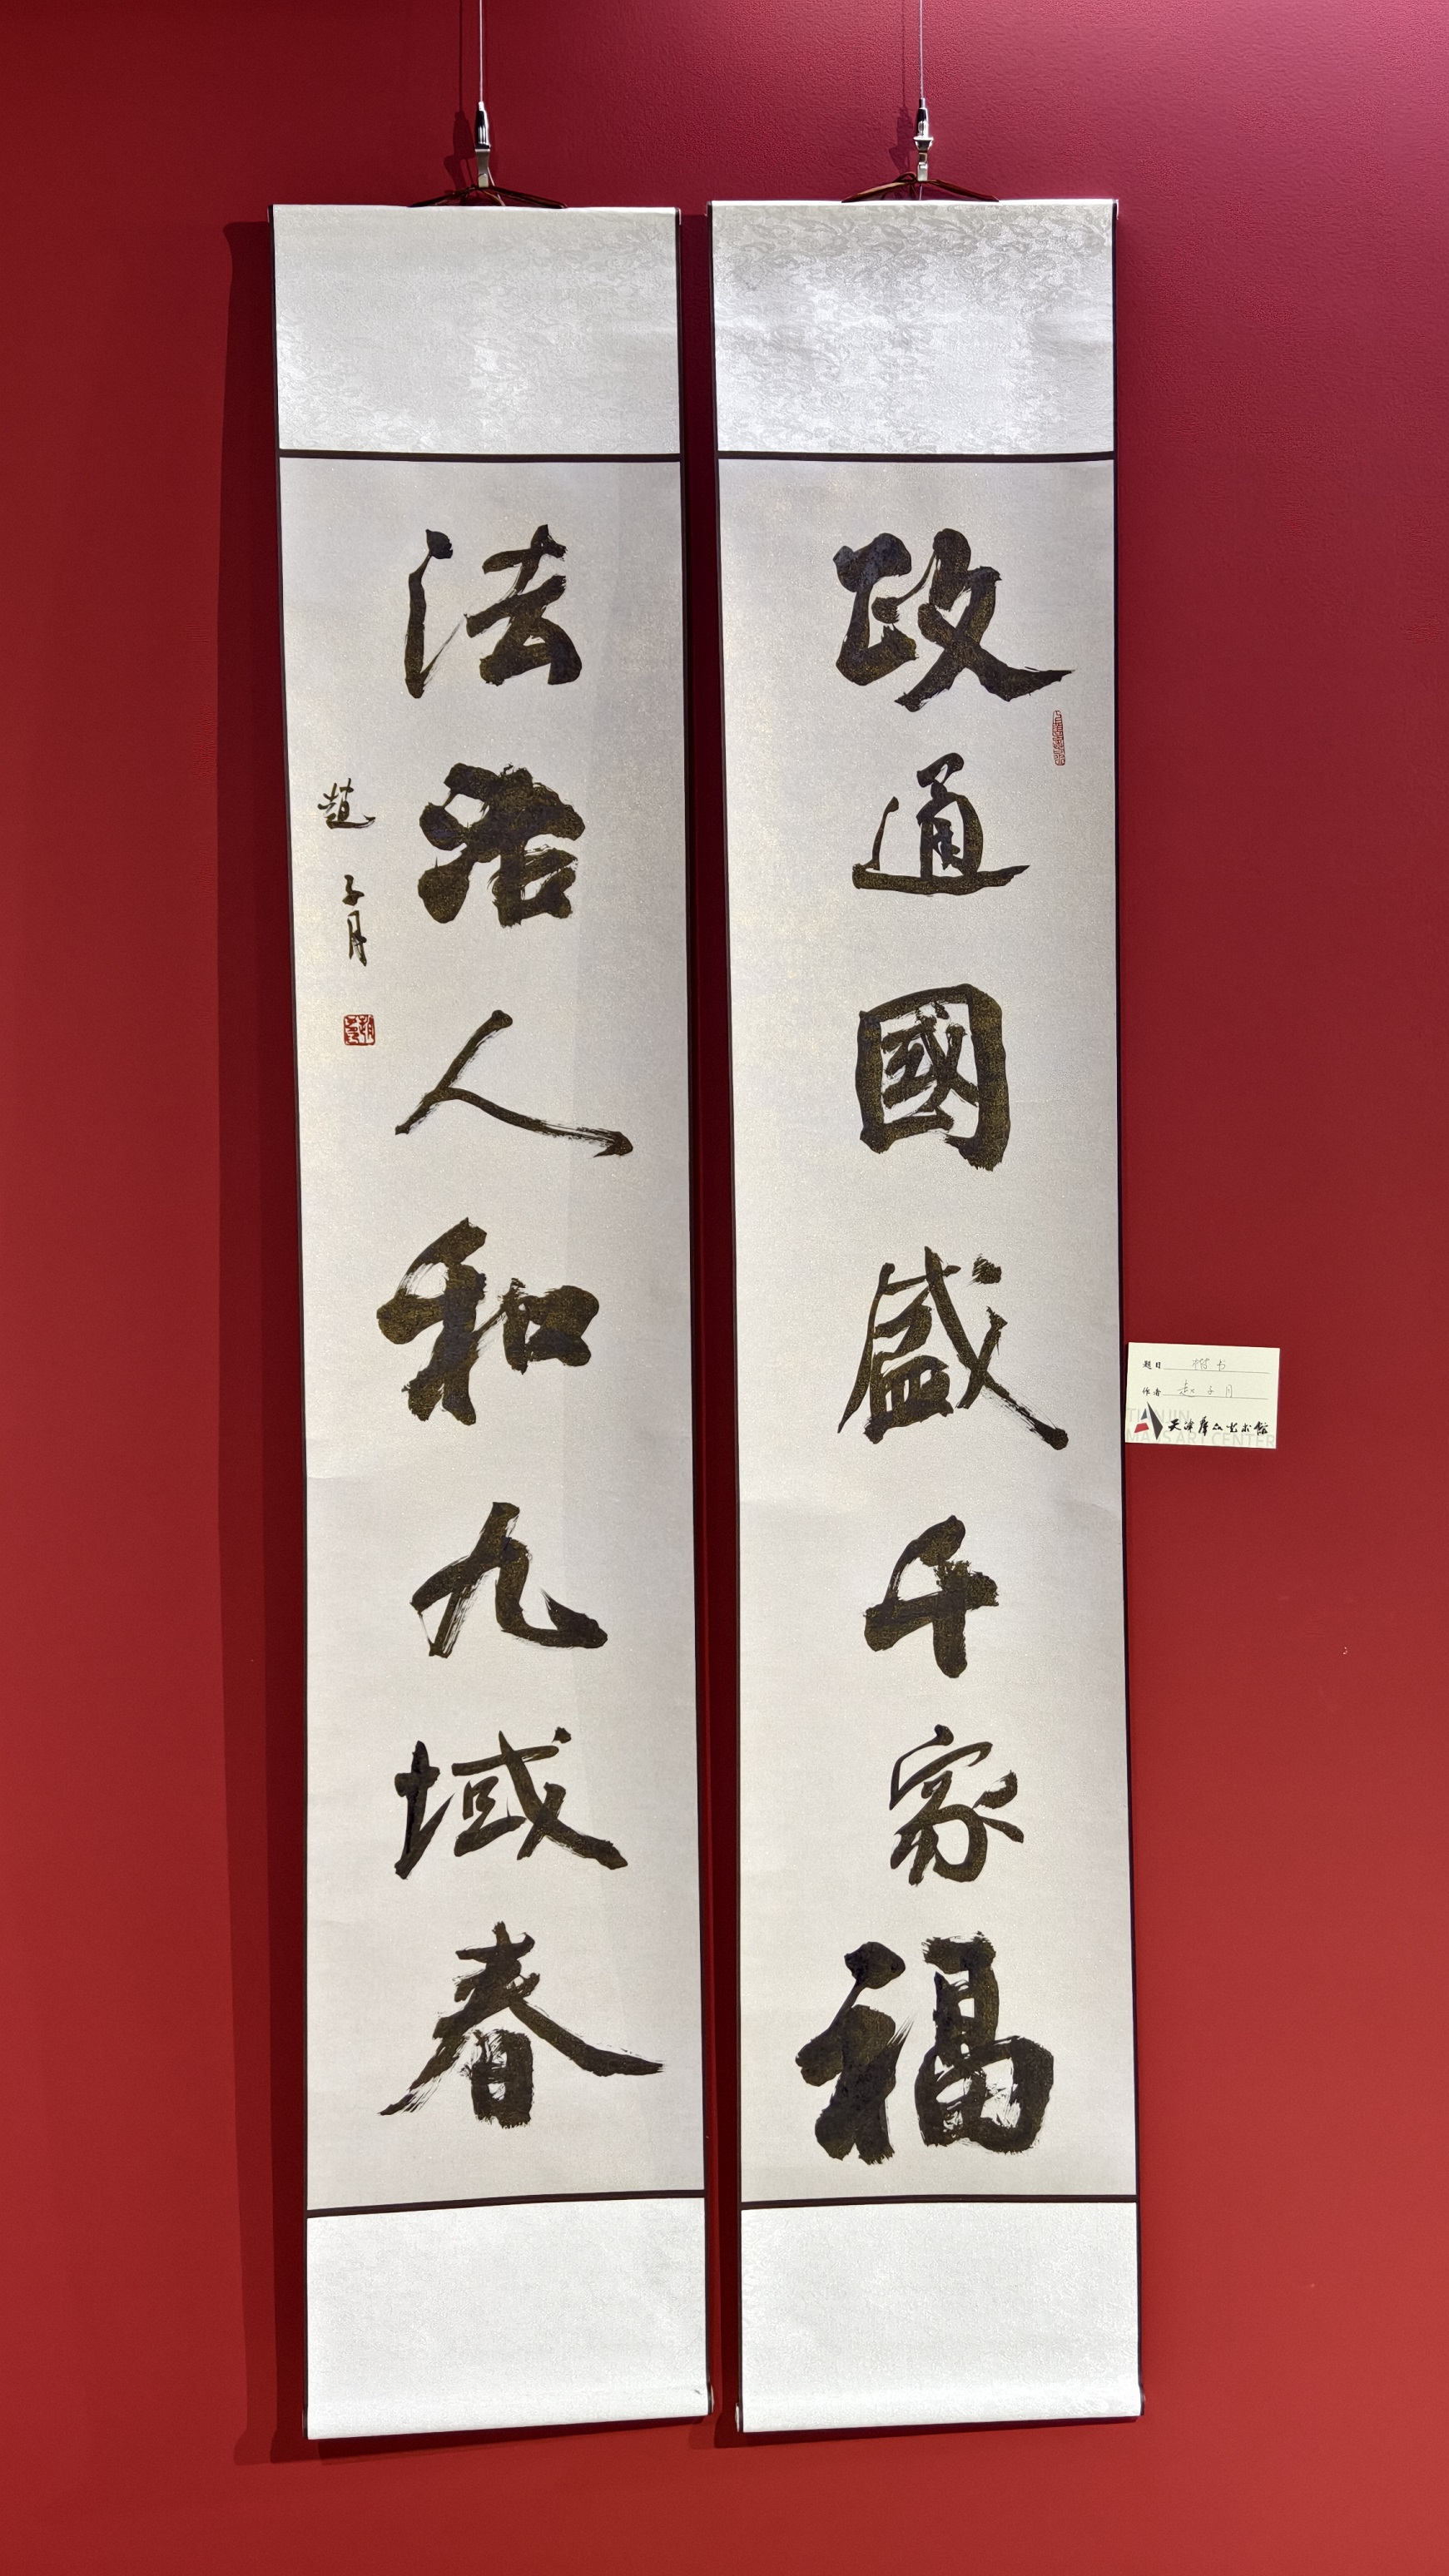 政通國盛千家福
法治人和九域春
趙子月
题目 楷书
作者 赵子月
天津群众艺术馆
TIANJIN
MASS ART CENTER